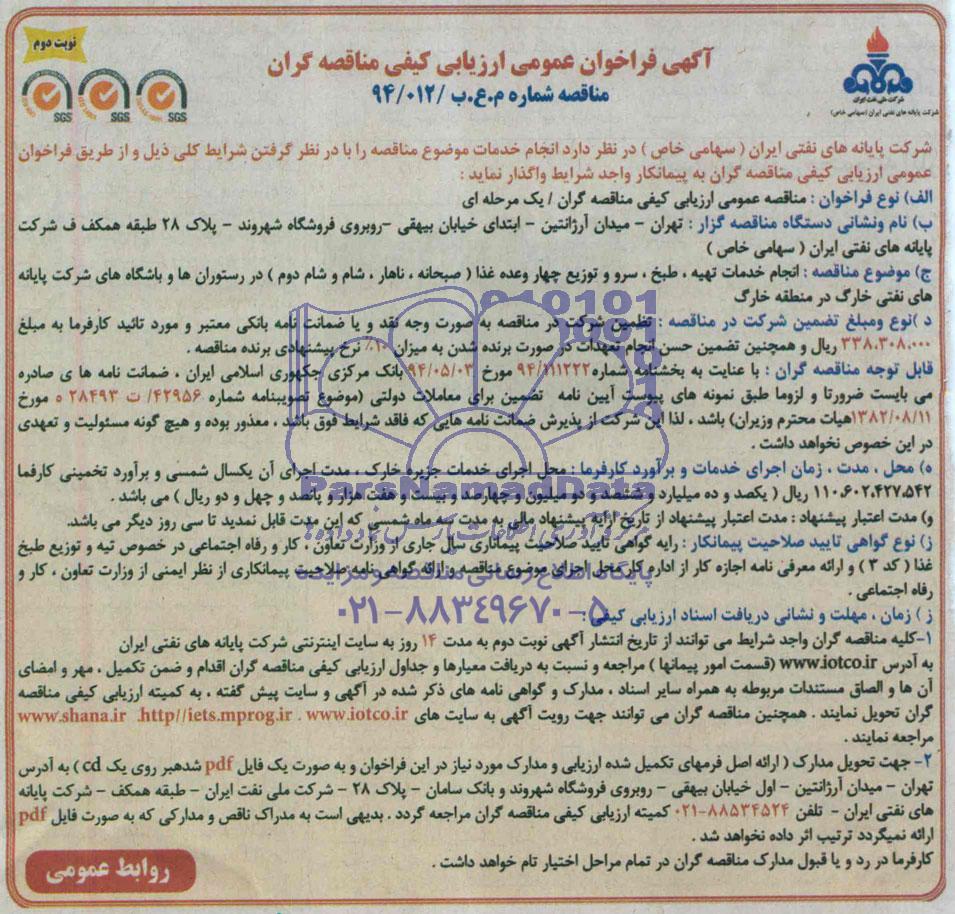 نوبت دوم
آگهی فراخوان عمومی ارزیابی کیفی مناقصه گران
مناقصه شماره م.ع.ب /۹۴/۰۱۲
SGS
SGS
SGS
شرکت ملی نفت ایران
شرکت پایانه های نفتی ایران (سهامی خاص)
شرکت پایانه های نفتی ایران ( سهامی خاص ) در نظر دارد انجام خدمات موضوع مناقصه را با در نظر گرفتن شرایط کلی ذیل و از طریق فراخوان
عمومی ارزیابی کیفی مناقصه گران به پیمانکار واجد شرایط واگذار نماید :
الف) نوع فراخوان : مناقصه عمومی ارزیابی کیفی مناقصه گران / یک مرحله ای
ب) نام ونشانی دستگاه مناقصه گزار : تهران - میدان آرژانتین - ابتدای خیابان بیهقی -روبروی فروشگاه شهروند - پلاک ۲۸ طبقه همکف ف شرکت
پایانه های نفتی ایران ( سهامی خاص )
ج) موضوع مناقصه : انجام خدمات تهیه ، طبخ ، سرو و توزیع چهار وعده غذا ( صبحانه ، ناهار ، شام و شام دوم ) در رستوران ها و باشگاه های شرکت پایانه
های نفتی خارگ در منطقه خارگ
د )نوع ومبلغ تضمین شرکت در مناقصه : تظمین شرکت در مناقصه به صورت وجه نقد و یا ضمانت نامه بانکی معتبر و مورد تائید کارفرما به مبلغ
۳۳۸.۳۰۸.۰۰۰ ریال و همچنین تضمین حسن انجام تعهدات در صورت برنده شدن به میزان ۱۰٪ نرخ پیشنهادی برنده مناقصه .
قابل توجه مناقصه گران : با عنایت به بخشنامه شماره۹۴/۱۱۱۲۲۲ مورخ ۹۴/۰۵/۰۳ بانک مرکزی جکهوری اسلامی ایران ، ضمانت نامه ها ی صادره
می بایست ضرورتا و لزوما طبق نمونه های پیوست آیین نامه تضمین برای معاملات دولتی (موضوع تصویبنامه شماره ۴۲۹۵۶/ ت ۲۸۴۹۳ ه مورخ
۱۳۸۲/۰۸/۱۱هیات محترم وزیران) باشد ، لذا این شرکت از پذیرش ضمانت نامه هایی که فاقد شرایط فوق باشد ، معذور بوده و هیچ گونه مسئولیت و تعهدی
در این خصوص نخواهد داشت .
ه) محل ، مدت ، زمان اجرای خدمات و برآورد کارفرما : محل اجرای خدمات جزیره خارک ، مدت اجرای آن یکسال شمسی و برآورد تخمینی کارفما
۱۱۰.۶۰۲.۴۲۷.۵۴۲ ریال ( یکصد و ده میلیارد و ششصد و دو میلیون و چهارصد و بیست و هفت هزار و پانصد و چهل و دو ریال ) می باشد .
و) مدت اعتبار پیشنهاد : مدت اعتبار پیشنهاد از تاریخ ارایه پیشنهاد مالی به مدت سه ماه شمسی که این مدت قابل نمدید تا سی روز دیگر می باشد.
ز) نوع گواهی تایید صلاحیت پیمانکار : رایه گواهی تایید صلاحیت پیماناری سال جاری از وزارت تعاون ، کار و رفاه اجتماعی در خصوص تیه و توزیع طبخ
غذا ( کد ۳ ) و ارائه معرفی نامه اجازه کار از اداره کار محل اجرای موضوع مناقصه و ارائه گواهی نامه صلاحیت پیمانکاری از نظر ایمنی از وزارت تعاون ، کار و
رفاه اجتماعی .
ز ) زمان ، مهلت و نشانی دریافت اسناد ارزیابی کیفی :
۱-کلیه مناقصه گران واجد شرایط می توانند از تاریخ انتشار آگهی نوبت دوم به مدت ۱۴ روز به سایت اینترنتی شرکت پایانه های نفتی ایران
به آدرس www.iotco.ir (قسمت امور پیمانها ) مراجعه و نسبت به دریافت معیارها و جداول ارزیابی کیفی مناقصه گران اقدام و ضمن تکمیل ، مهر و امضای
آن ها و الصاق مستندات مربوطه به همراه سایر اسناد ، مدارک و گواهی نامه های ذکر شده در آگهی و سایت پیش گفته ، به کمیته ارزیابی کیفی مناقصه
گران تحویل نمایند . همچنین مناقصه گران می توانند جهت رویت آگهی به سایت های www.shana.ir .http//iets.mprog.ir . www.iotco.ir
مراجعه نمایند .
۲- جهت تحویل مدارک ( ارائه اصل فرمهای تکمیل شده ارزیابی و مدارک مورد نیاز در این فراخوان و به صورت یک فایل pdf شدهبر روی یک cd ) به آدرس
تهران - میدان آرژانتین - اول خیابان بیهقی - روبروی فروشگاه شهروند و بانک سامان - پلاک ۲۸ - شرکت ملی نفت ایران - طبقه همکف - شرکت پایانه
های نفتی ایران - تلفن ۸۸۵۳۴۵۲۴-۰۲۱ کمیته ارزیابی کیفی مناقصه گران مراجعه گردد . بدیهی است به مدراک ناقص و مدارکی که به صورت فایل pdf
ارائه نمیگردد ترتیب اثر داده نخواهد شد .
کارفرما در رد و یا قبول مدارک مناقصه گران در تمام مراحل اختیار تام خواهد داشت .
روابط عمومی
ParsNamadData
پایگاه اطلاع رسانی مناقصه و مزایده
۰۲۱-۸۸۳۴۹۶۷۰-۵